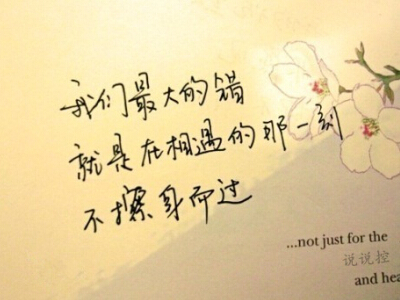 我们最大的错
就是在相遇的那一刻
不擦身而过
...not just for the
说说控
and hea